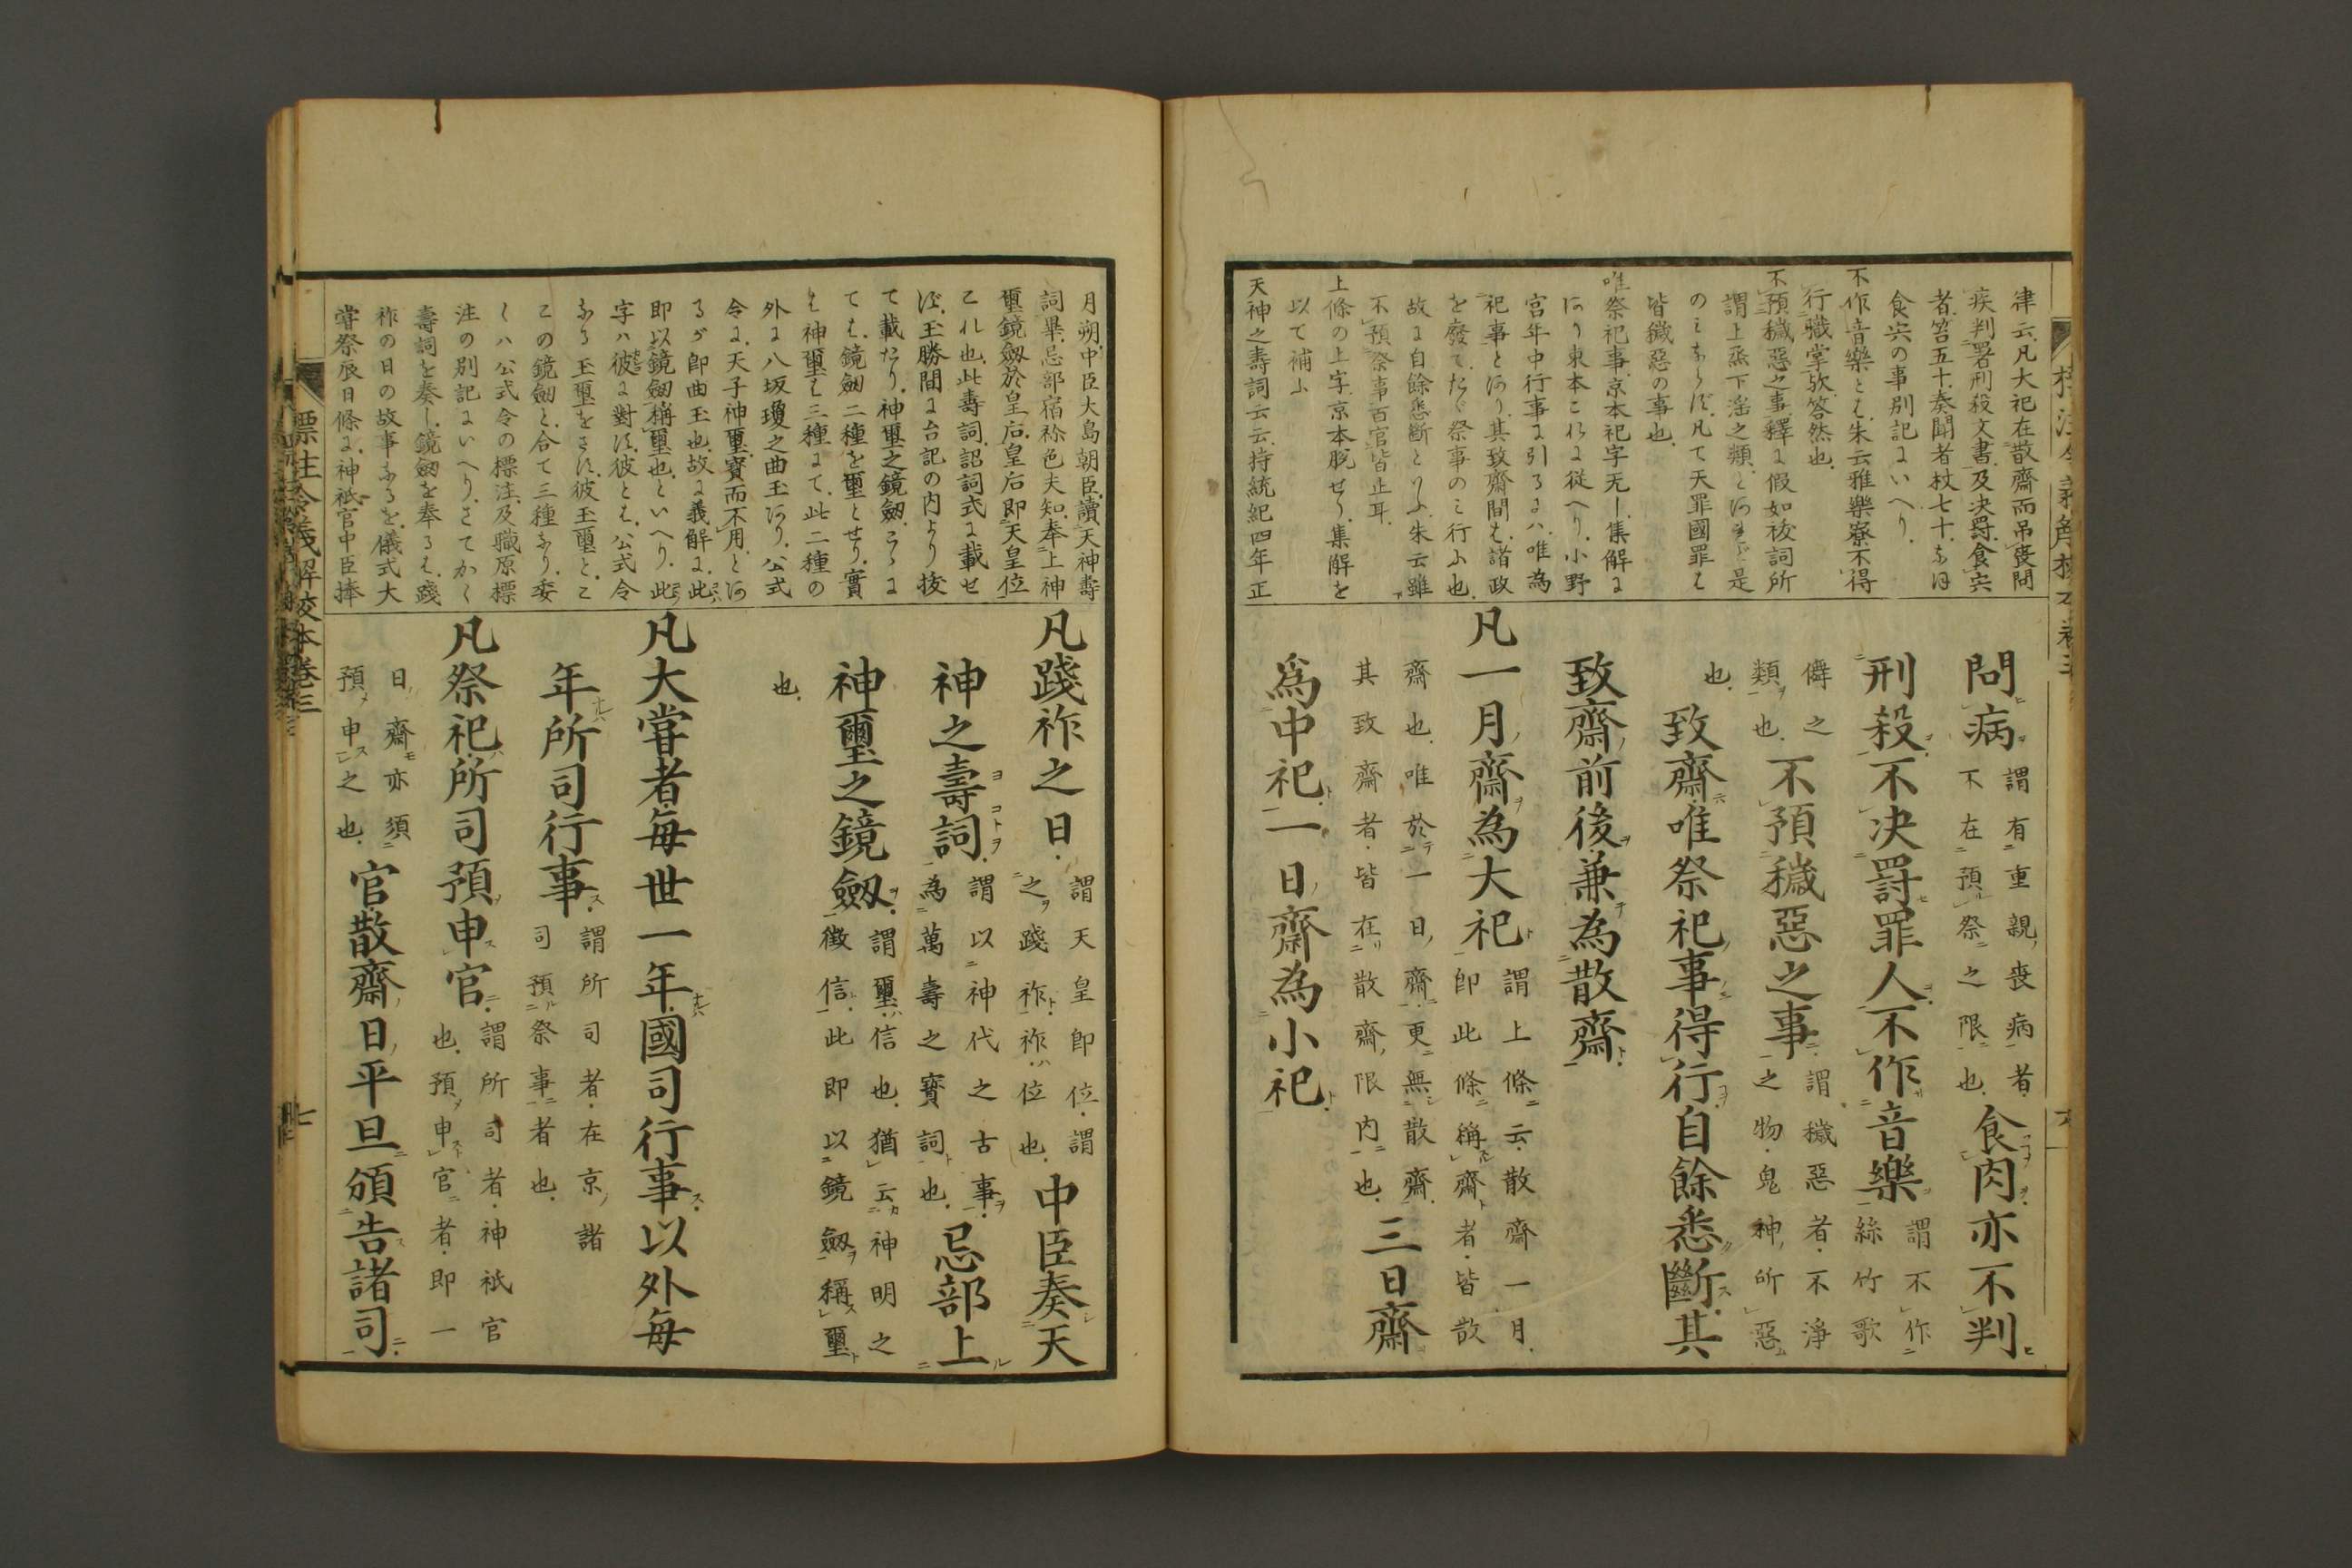 律云凡大祀在散齋而吊喪問
疾判署刑殺文書及决罸食宍
者笞五十奏聞者杖七十なほ
食宍の事別記にいへり
不作音樂とは朱云雅樂寮不得
行職掌歟答然也
不預穢惡之事釋に假如祓詞所
謂上烝下淫之類とあれど是
のみならず凡て天罪國罪は
皆穢惡の事也
唯祭祀事京本祀字无し集解に
あり東本これに従へり小野
宮年中行事に引るには唯為
祀事とあり其致齋間は諸政
を廢てたゞ祭事のみ行ふ也
故に自餘悉斷といふ朱云雖
不預祭事百官皆止耳
上條の上字京本脱せり集解を
以て補ふ
天神之壽詞云云持統紀四年正
問病謂有重親喪病者
不在預祭之限也食肉亦不判
刑殺不决罸罪人不作音樂謂不作
絲竹歌
儛之
類也不預穢惡之事謂穢惡者不淨
之物鬼神所惡
也
致齋唯祭祀事得行自餘悉斷其
致齋前後兼為散齋
凡一月齋為大祀謂上條云散齋一月
即此條稱齋者皆散
齋也唯於一日齋更無散齋
其致齋者皆在散齋限内也三日齋
爲中祀一日齋為小祀
月朔中臣大島朝臣讀天神壽
詞畢忌部宿祢色夫知奉上神
璽鏡劔於皇后皇后即天皇位
これ也此壽詞詔詞式に載せ
ず玉勝間に台記の内より抜
て載たり神璽之鏡劔こゝに
ては鏡劔二種を璽とせり實
は神璽は三種にて此二種の
外に八坂瓊之曲玉あり公式
令に天子神璽寳而不用とあ
るが即曲玉也故に義解に此
即以鏡劔稱璽也といへり此
字ハ彼に對す彼とは公式令
なる玉璽をさす彼玉璽とこ
この鏡劔と合て三種なり委
しハ公式令の標注及職原標
注の別記にいへりさてかく
壽詞を奏し鏡劔を奉るは踐
祚の日の故事なるを儀式大
甞祭辰日條に神祇官中臣捧
凡踐祚之日謂天皇即位謂
之踐祚祚位也中臣奏天
神之壽詞謂以神代之古事
為萬壽之寳詞也忌部上
神璽之鏡劔謂璽信也猶云神明之
徴信此即以鏡劔稱璽
也
凡大甞者毎世一年國司行事以外毎
年所司行事謂所司者在京諸
司預祭事者也
凡祭祀所司預申官謂所司者神祇官
也預申官者即一
日齋亦須
預申之也官散齋日平旦頒告諸司
標注令義解挍本巻三
七